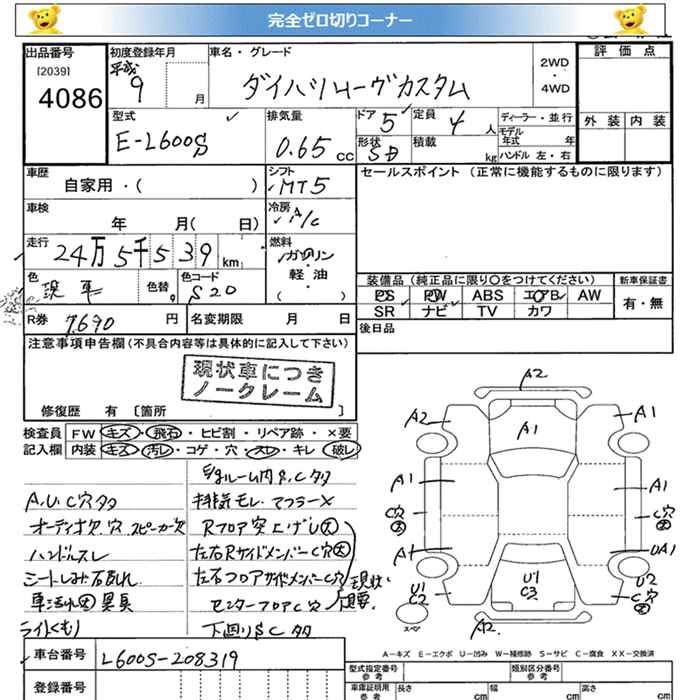 完全ゼロ切りコーナー
出品番号 初度登録年月 車名・グレード 評価点
[2039] 平成 2WD
4086 9 月 ダイハツムーヴカスタム ・
4WD
型式 排気量 ドア 5 定員 4 人 ディーラー・並行 外装 内装
E-L600S 0.65 cc 形状 SD 積載 kg モデル年式 年
ハンドル 左・右
車歴 シフト セールスポイント(正常に機能するものに限ります)
自家用・( ) MT5
車検 冷房
年 月( 日) A/C
走行 24万5千539km 燃料
ガソリン
軽・油
( )
色 現車 色替 色コード S20
装備品(純正品に限り〇をつけてください) 新車保証書
PS PW ABS エアB AW 有・無
SR ナビ TV カワ
R券 7,690 円 名変期限 月 日 後日品
注意事項申告欄(不具合内容等は具体的に記入して下さい)
現状車につき
ノークレーム
修復歴 有 〔箇所 〕
検査員 FW キズ・飛石・ヒビ割・リペア跡・×要
記入欄 内装 キズ・汚レ・コゲ・穴・スレ・キレ・破レ
A,U,C穴多
オーディオ欠、穴 スピーカー欠
ハンドルスレ
シートしみ
車汚れ大 異臭
ライトくもり
ルーム内S,C多
排気モレ、マフラー×
Rフロア突上げU大
左右RサイドメンバーC穴大
左右フロアサイドメンバーC穴
センターフロアC穴
下回りSC多
現状
A2
A2 A1
A1
A1 A1
C穴大 C穴大
A1 UA1
U1
C2
U1
C3
U2
C穴大
スペア
A2
A-キズ E-エクボ U-凹み W-補修跡 S-サビ C-腐食 XX-交換済
車台番号 L600S-208319
登録番号
型式指定番号 参考 類別区分番号 参考
車庫証明用 参考 長さ cm 幅 cm 高さ cm